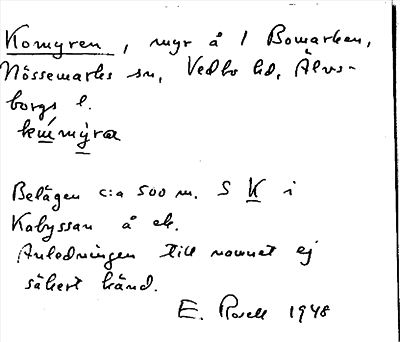 Komyren, myr å 1 Bomarken,
Nössemarks sn, Vedbo hd, Älvs-
borgs l.
Belägen c:a 500 m. S K i
Kabyssan å ek.
Anledningen till namnet ej
säkert känd.
E. Rosell 1948